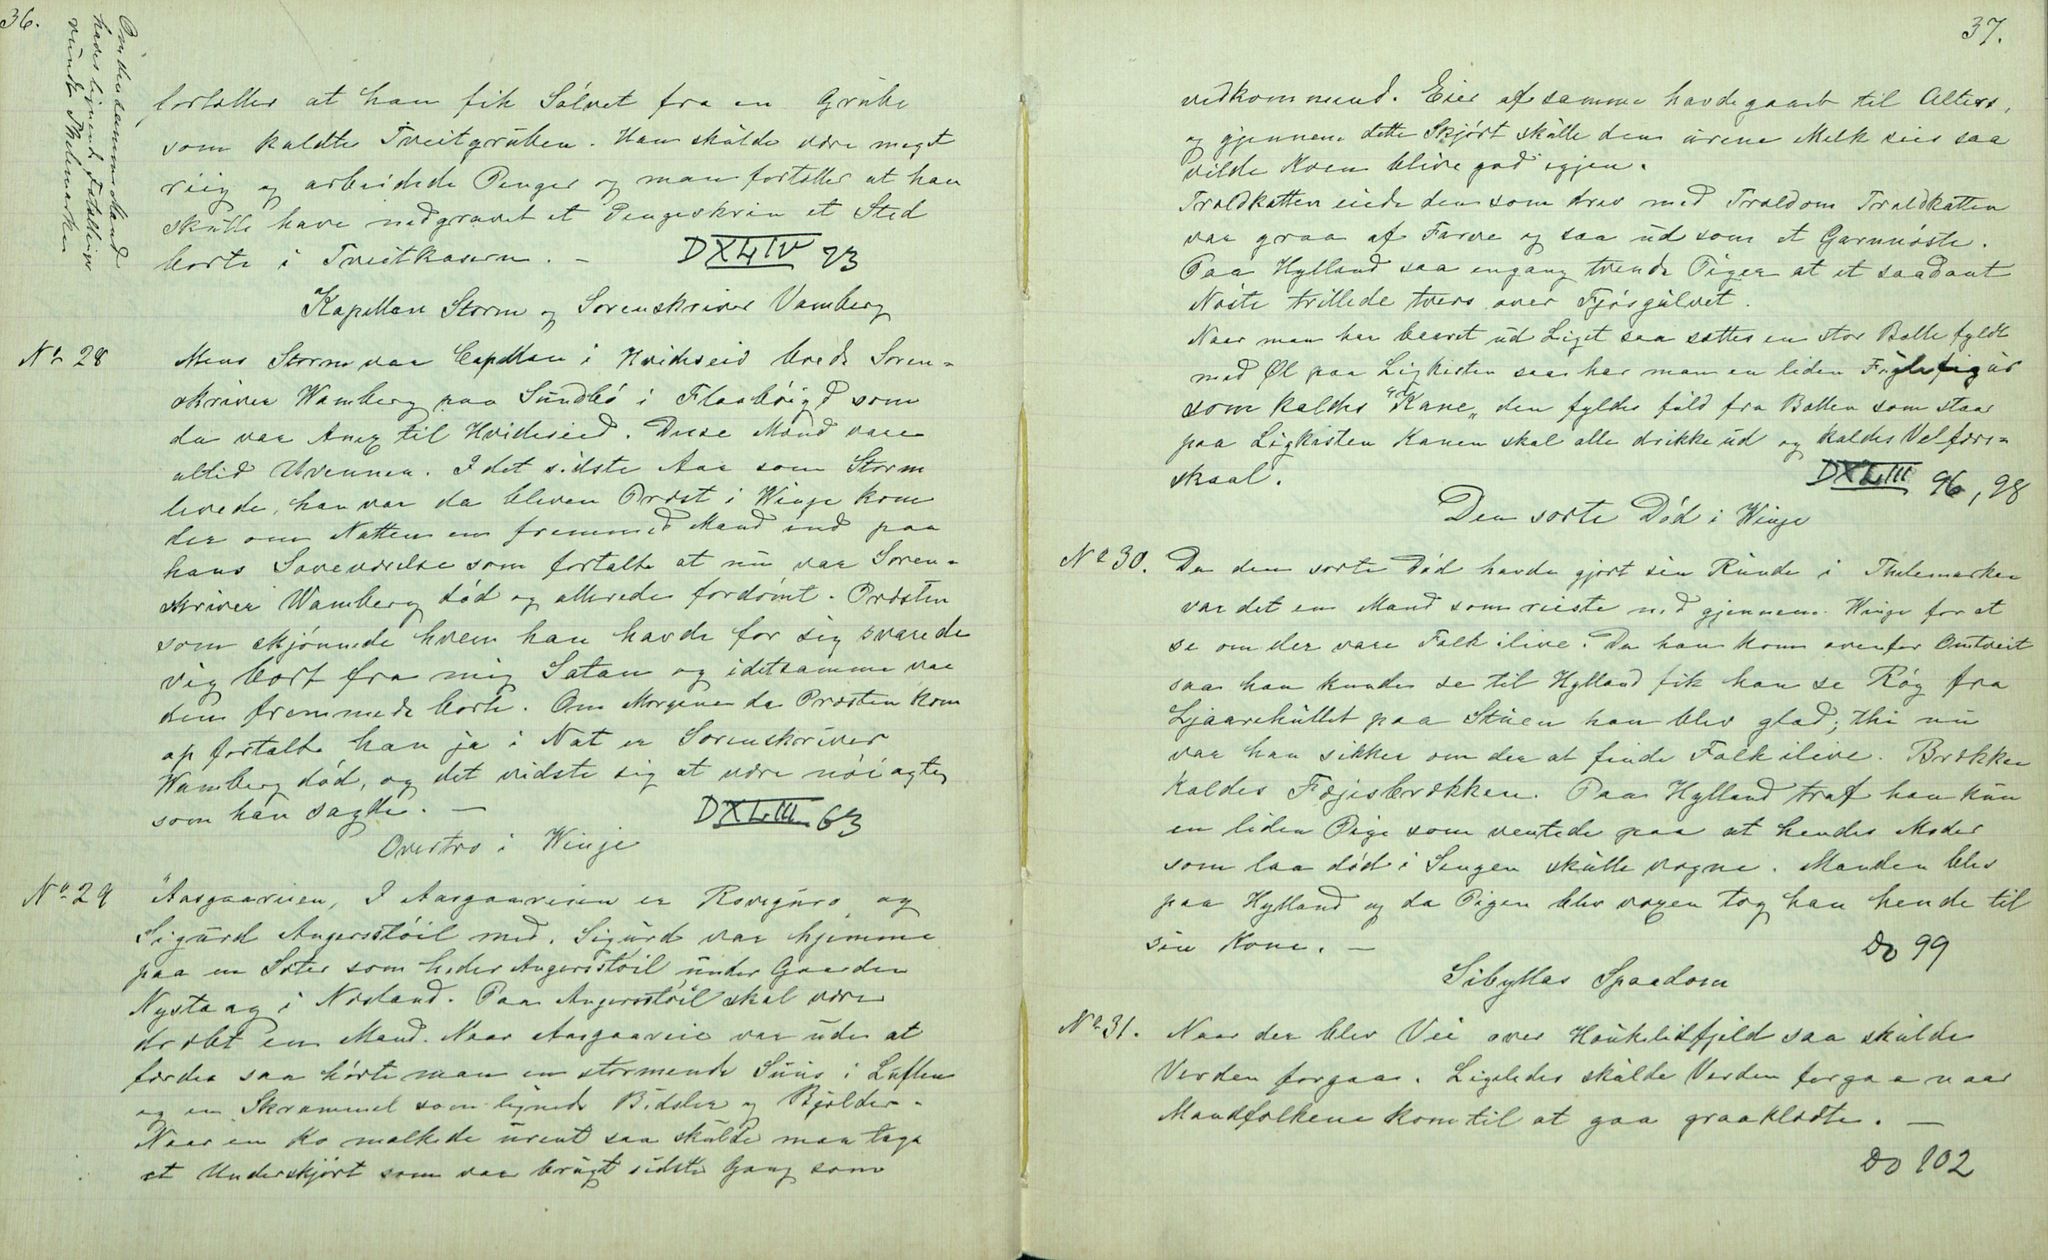 36.
Om den samme Mand
haves lignende Fortællinger
rundt Thelemarken
fortælles at han fik Sølvet fra en Grube
som kaldtes Tveitgruben. Han skulde være meget
riig og arbeidede Penger og man fortæller at han
skulle have nedgravet et Pengeskrin et Sted
borte i Tveitkaasen. –
DXLIV 73
Kapellan Storm og Sorenskriver Vamberg
No 28 Mens Storm var Capellan i Hvideseid boede Soren-
skriver Wamberg paa Sundbø i Flaabøigd som
da var Anex til Hvideseid. Disse Mænd vare
altid Uvenner. I det sidste Aar som Storm
levede, han var da bleven Præst i Winje kom
der om Natten en fremmed Mand ind paa
hans Soveværelse som fortalte at nu var Soren-
skriver Wamberg død og allerede fordømt. Præsten
som skjønnede hvem han havde for sig svarede
vig bort fra mig Satan og i detsamme var
den fremmede borte. Om Morgenen da Præsten kom
op fortalte han ja i Nat er Sorenskriver
Wamberg død, og det vidste sig at være nøiagtig
som han sagde. –
DXLIII 63
Overtro i Winje
No 29 "Aasgaareien, I Aasgaareien er Roveguro og
Sigurd Angerstøil med. Sigurd var hjemme
paa en Sæter som heder Angersstøil under Gaarden
Nystaag i Næsland. Paa Angersstøil skal være
dræbt en Mand. Naar Aasgaareie var ude at
færdes saa hørte man en stormende Suus i Luften
og en Skrammel som lignede Bidsler og Bjelder.
Naar en Ko malkede urent saa skulde man tage
et Underskjørt som var brugt sidste Gang som
37.
vedkommend. Eier af samme havde gaaet til Alters,
og gjennem dette Skjørt skulle den urene Melk sies saa
vilde Koen blive god igjen.
Troldkatten eiede den som drev med Troldom Troldkatten
var graa af Farve og saa ud som et Garnnøste.
Paa Hylland saa engang tvende Piger at et saadant
Nøste trillede tvers over Fjøsgulvet.
Naar man har baaret ud Liget saa sættes en stor Bolle fyldt
med Øl paa Ligkisten saa har man en liden Fuglefigur
som kaldes "Kane" den fyldes fuld fra Bollen som staar
paa Ligkisten Kanen skal alle drikke ud og kaldes Velfærs-
skaal.
DXLIII 96, 98
Den sorte Død i Winje
No 30. Da den sorte Død havde gjort sin Runde i Thelemarken
var det en Mand som reiste ned gjennem Winje for at
se om der vare Folk ilive. Da han kom ovenfor Omtveit
saa han kunde se til Hylland fik han se Røg fra
Ljaarehullet paa Stuen han blev glad; thi nu
var han sikker om der at finde Folk ilive. Brækken
kaldes Fægisbrækken. Paa Hylland traf han kun
en liden Pige som ventede paa at hendes Moder
som laa død i Sengen skulle vogne. Manden blev
paa Hylland og da Pigen blev voxen tog han hende til
sin Kone. –
Do 99
Sibyllas Spaadom
No 31. Naar der blev Vei over Houkelidfjeld saa skulde
Verden forgaa. Ligeledes skulde Verden forgaa naar
Mandfolkene kom til at gaa graaklædte. –
Do 102